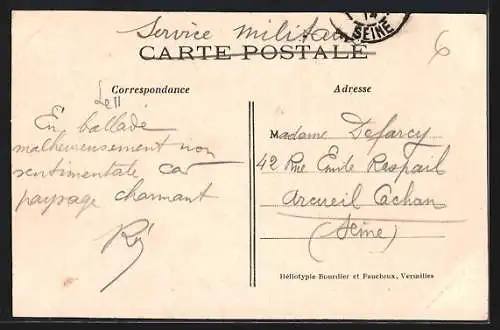 Service militaire
14
SEINE
CARTE POSTALE
6
Correspondance
Le 11
En ballade
malheureusement non
sentimentale car
paysage charmant
Adresse
Madame Defarcy
42 Rue Emile Raspail
Arcueil Cachan
(Seine)
Héliotypie Bourdier et Faucheux, Versailles